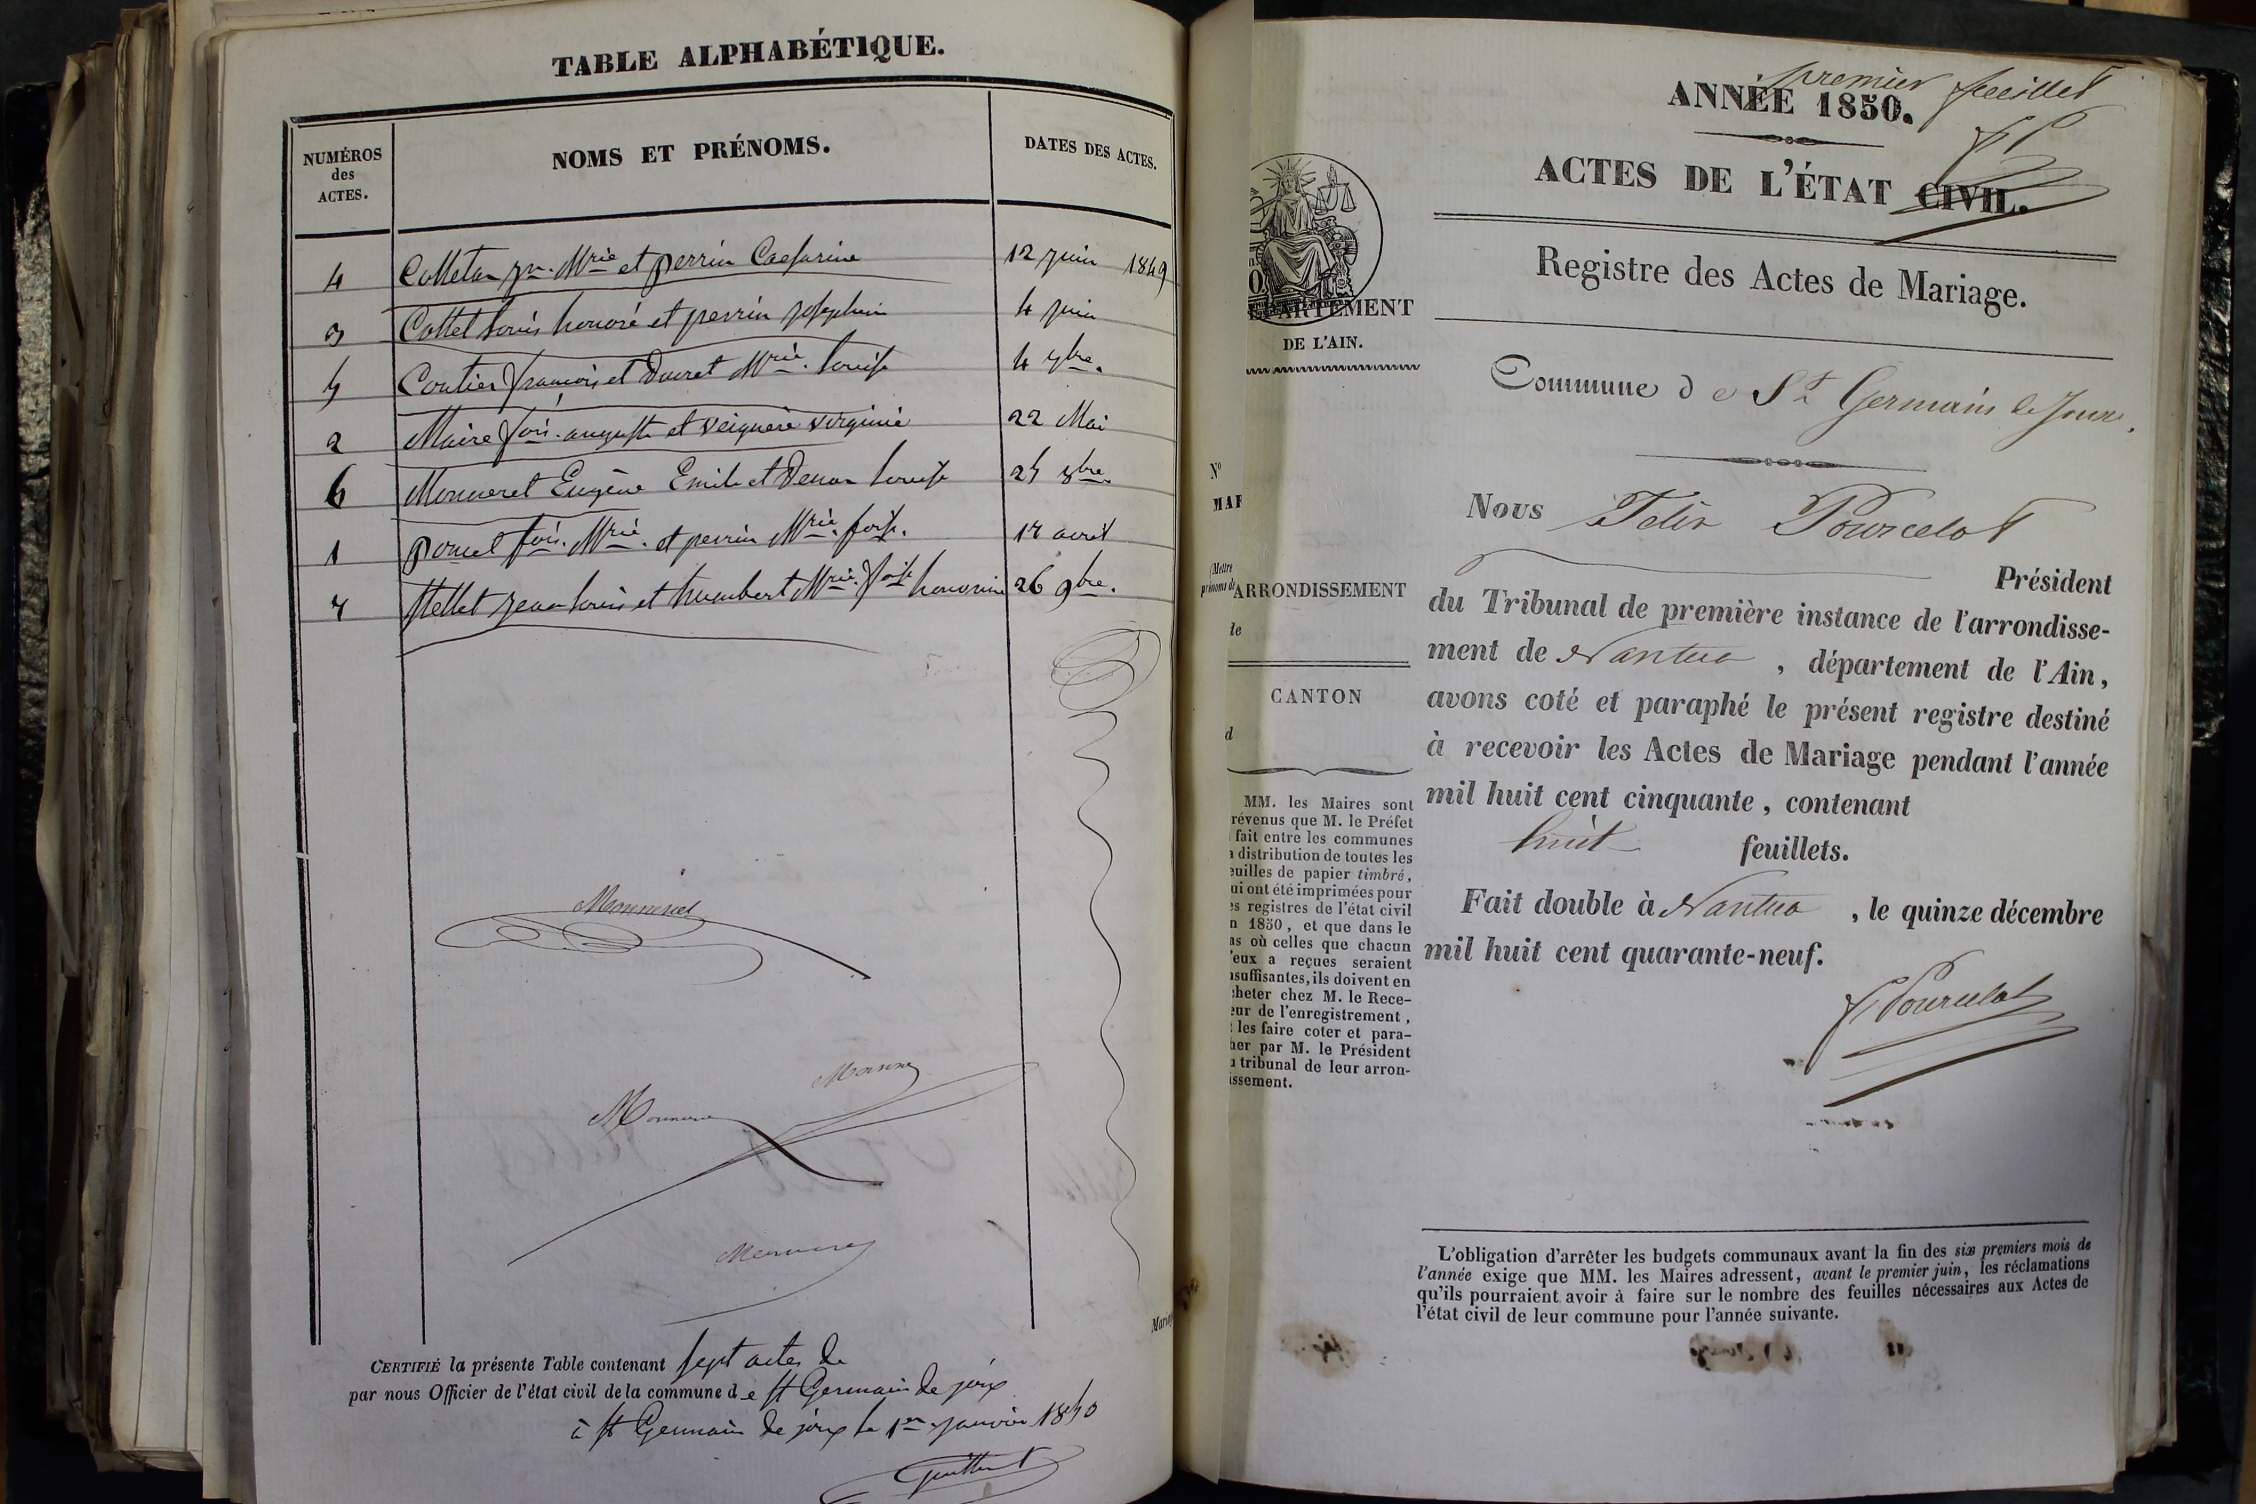 TABLE ALPHABÉTIQUE.
NUMÉROS
des
ACTES.
NOMS ET PRÉNOMS.
DATES DES ACTES.
4 Colletaz jn. Mrie et perrin Caesarine 12 juin 1849
3 Cottet Louis honoré et perrin josephine 4 juin
5 Coutier françois et Ducret Mrie. Louise 4 7bre.
2 Maire fois. auguste et Seignere virginie 22 Mai
6 Monneret Eugène Emile et Louise 25 8bre.
1 poncet fois. Mrie. et perrin Mrie. foise. 17 avril
7 Mellet jean Louis et humbert Mrie. foise honorine 26 9bre.
Monneret
Monneret
CERTIFIÉ la présente Table contenant sept actes de
par nous Officier de l'état civil de la commune de St Germain de joux
à St Germain de joux le 1er janvier 1850
premier feuillet
ANNÉE 1850.
ACTES DE L'ÉTAT CIVIL.
Registre des Actes de Mariage.
DÉPARTEMENT
DE L'AIN.
Commune de St Germain de Joux.
Nous Félix Pourcelot
Président
du Tribunal de première instance de l'arrondisse-
ment de Nantua, département de l'Ain,
avons coté et paraphé le présent registre destiné
à recevoir les Actes de Mariage pendant l'année
mil huit cent cinquante, contenant
huit feuillets.
Fait double à Nantua, le quinze décembre
mil huit cent quarante-neuf.
F. Pourcelot
No
MAR
(Mettre
prénoms de
ARRONDISSEMENT
de
CANTON
d
MM. les Maires sont
révenus que M. le Préfet
fait entre les communes
a distribution de toutes les
euilles de papier timbré,
ui ont été imprimées pour
es registres de l'état civil
n 1850, et que dans le
as où celles que chacun
'eux a reçues seraient
nsuffisantes, ils doivent en
cheter chez M. le Rece-
eur de l'enregistrement,
t les faire coter et para-
her par M. le Président
u tribunal de leur arron-
issement.
L'obligation d'arrêter les budgets communaux avant la fin des six premiers mois de
l'année exige que MM. les Maires adressent, avant le premier juin, les réclamations
qu'ils pourraient avoir à faire sur le nombre des feuilles nécessaires aux Actes de
l'état civil de leur commune pour l'année suivante.